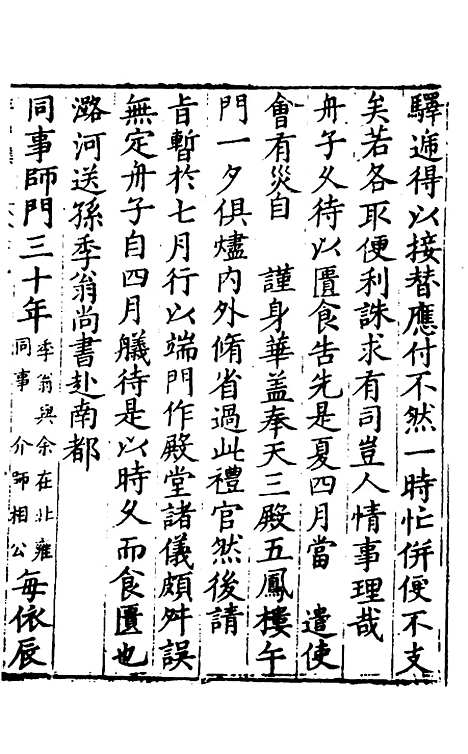 驛遞得以接替應付不然一時忙併便不支
矣若各取便利誅求有司豈人情事理哉
舟子久待以匱食告先是夏四月當　遣使
會有災自　謹身華盖奉天三殿五鳳樓午
門一夕俱燼内外脩省過此禮官然後請
旨暫於七月行以端門作殿堂諸儀頗舛誤
無定舟子自四月艤待是以時久而食匱也
潞河送孫季翁尚書赴南都
同事師門三十年季翁與余在北雍同事介師相公每依辰